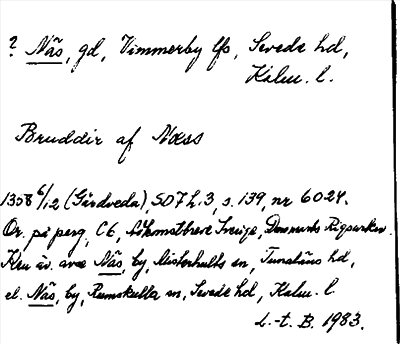 ? Näs, gd, Vimmerby lfs, Sevede hd,
Kalm. l.
Bruddir af Næss
1358 6/12 (Gårdveda), SD 7 h. 3, s. 139, nr 6024.
Or. på perg, C6, Danmarks Rigsarkiv.
Kan äv. avse Näs, by, Misterhults sn, Tunaläns hd,
el. Näs, by, Rumskulla sn, Sevede hd, Kalm. l.
L.-t. B. 1983.